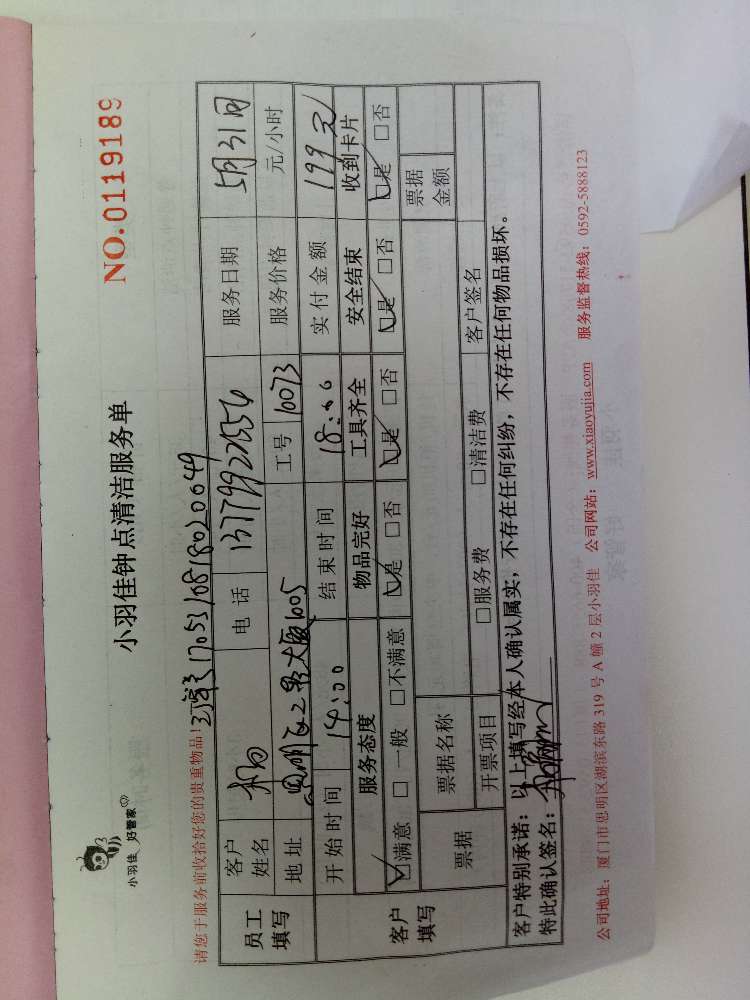 小羽佳 好管家
NO.0119189
小羽佳钟点清洁服务单
请您于服务前收拾好您的贵重物品！
1705310818020049
员工填写
客户姓名 电话 13779922555 服务日期 5月31日
地址 1005 工号 10073 服务价格 元/小时
开始时间 14:00 结束时间 18:00 实付金额 199元
客户填写
服务态度 物品完好 工具齐全 安全结束 收到卡片
☑满意 □一般 □不满意 ☑是 □否 ☑是 □否 ☑是 □否 ☑是 □否
票据 票据名称 票据金额
开票项目 □服务费 □清洁费 客户签名
客户特别承诺：以上填写经本人确认属实，不存在任何纠纷，不存在任何物品损坏。
特此确认签名：
公司地址：厦门市思明区湖滨东路 319 号 A 幢 2 层小羽佳 公司网站：www.xiaoyujia.com 服务监督热线：0592-5888123